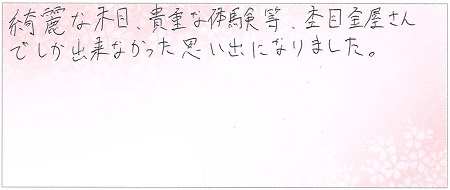 綺麗な木目、貴重な体験等、杢目金屋さん
でしか出来なかった思い出になりました。